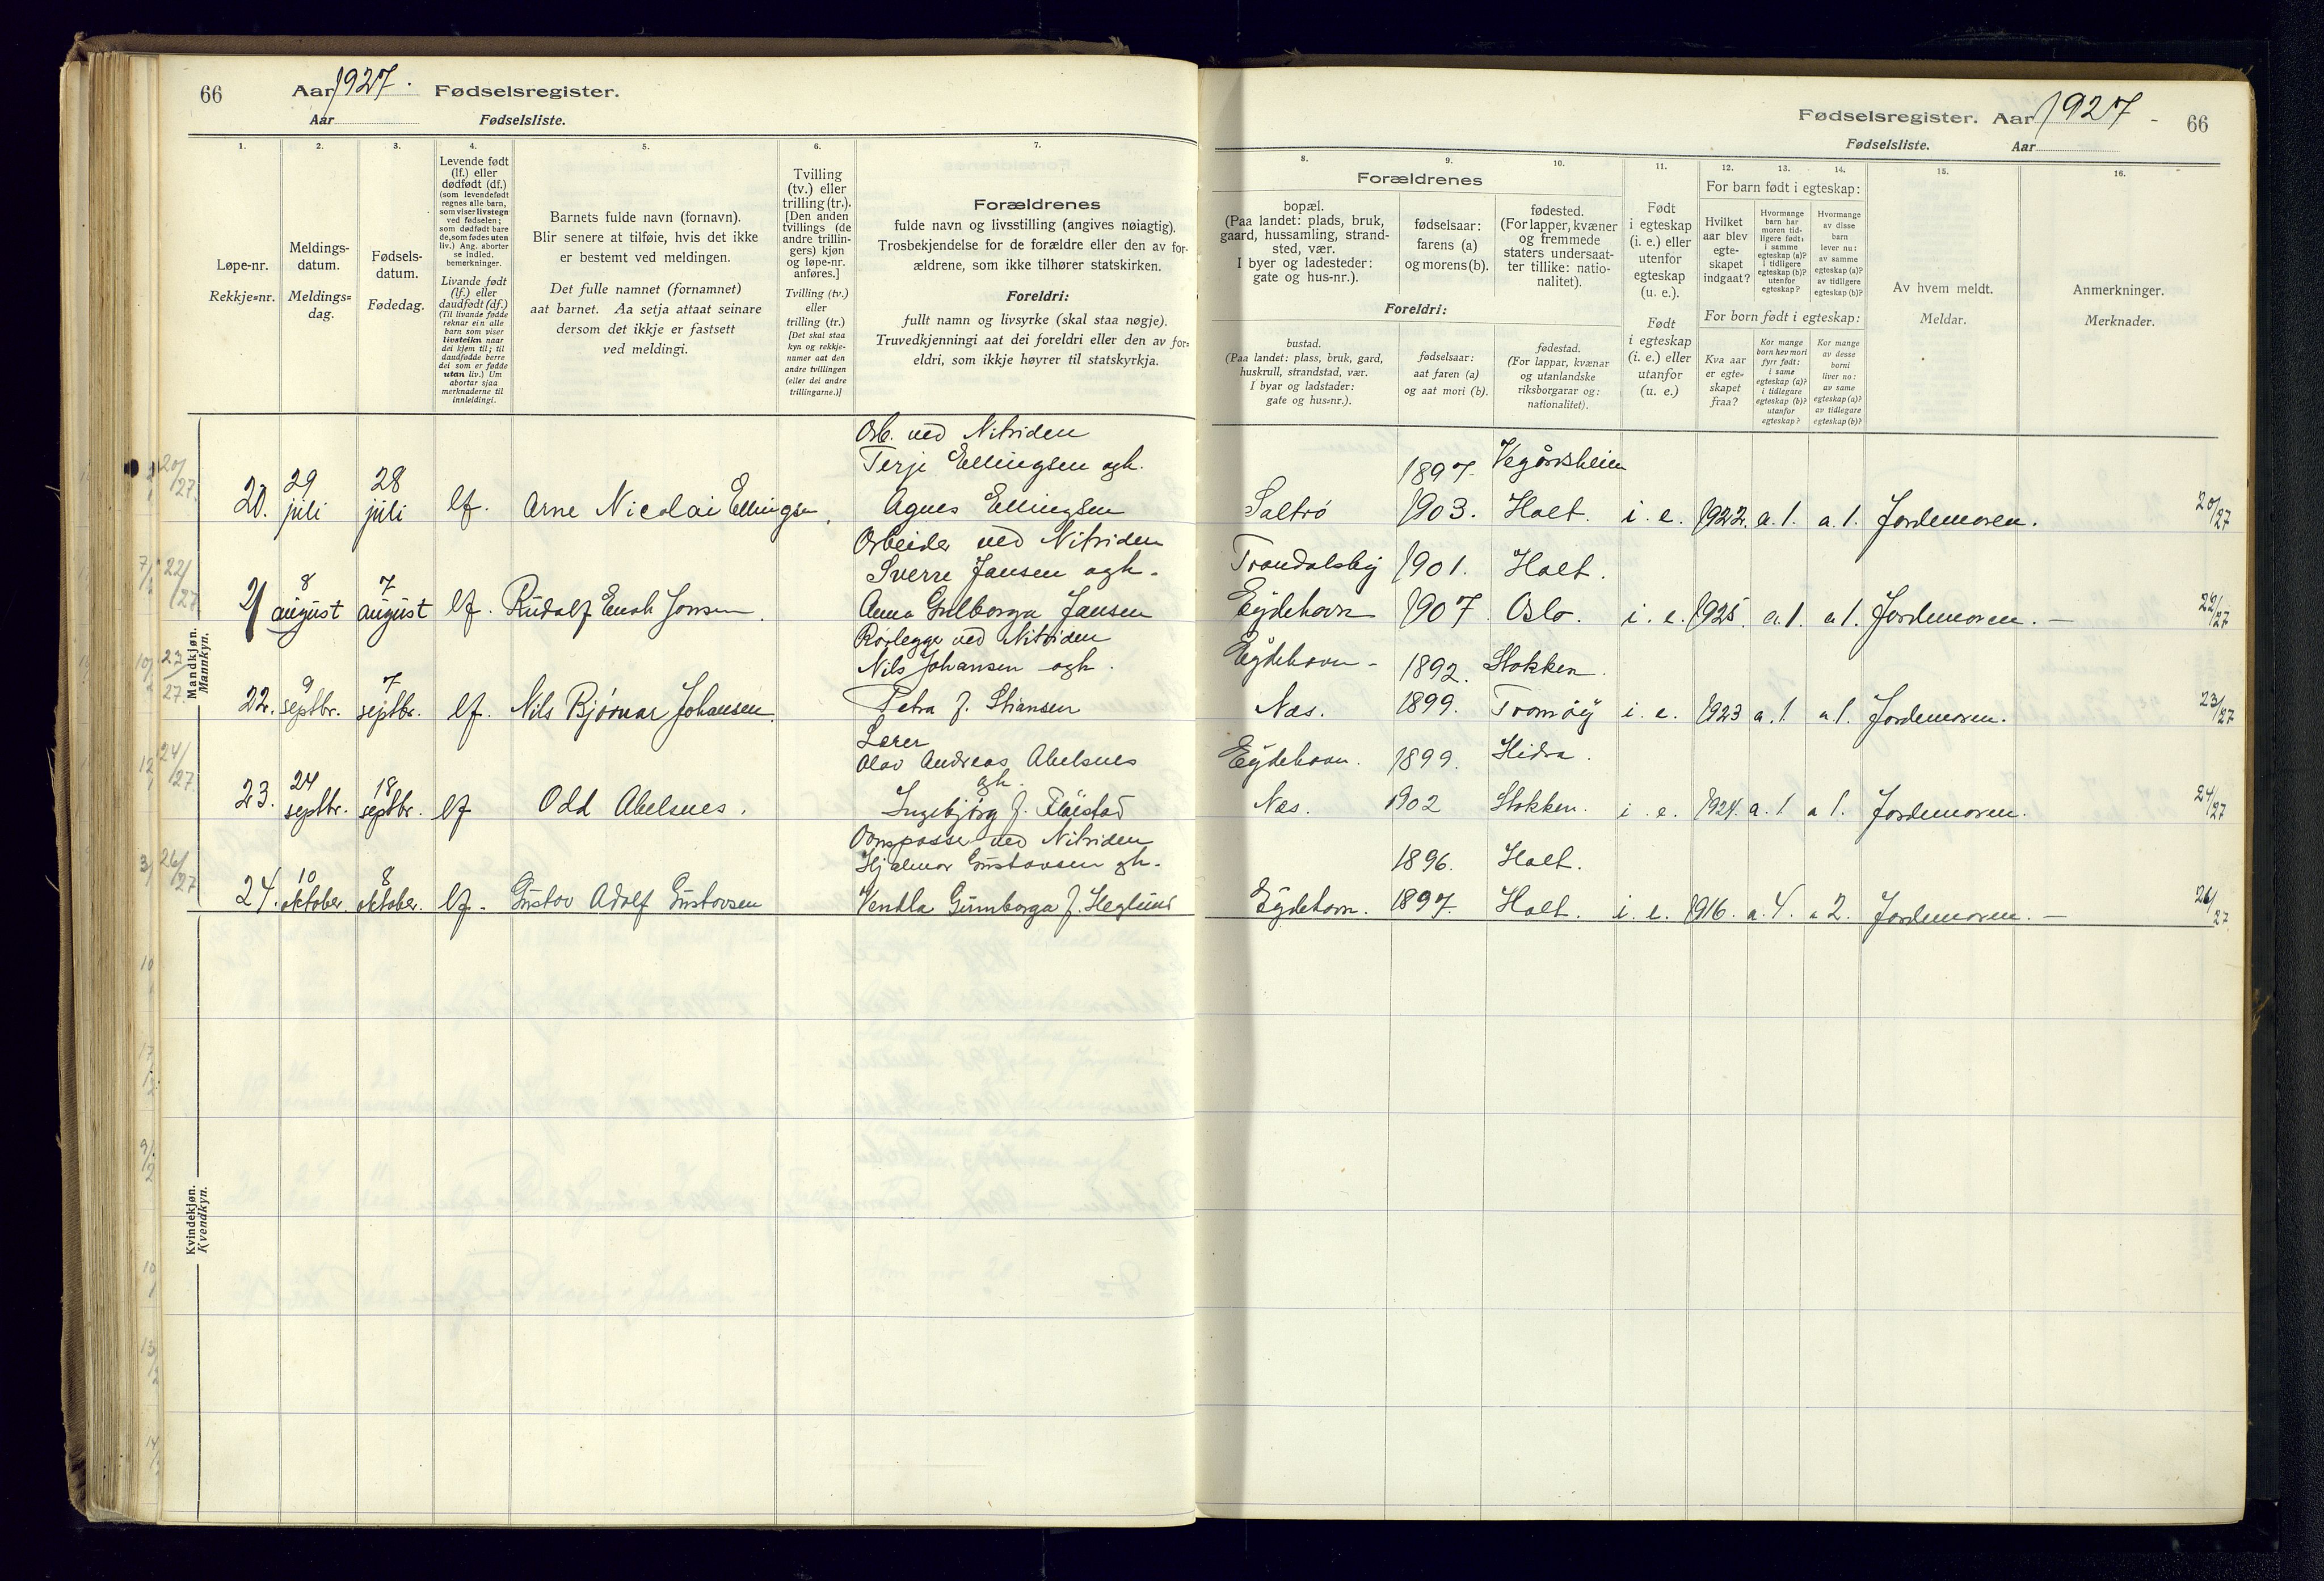 66 Aar 1927. Fødselsregister.
Aar Fødselsliste.
1. 2. 3. 4. 5. 6. 7.
Løpe-nr.
Rekkje=nr.
Meldings-
datum.
Meldings=
dag.
Fødsels-
datum.
Fødedag.
Levende født
(lf.) eller
dødfødt (df.)
(som levendefødt
regnes alle barn,
som viser livstegn
ved fødselen;
som dødfødt bare
de, som fødes uten
liv.) Ang. aborter
se indled.
bemerkninger.
Livande født
(lf.) eller
daudfødt (df.)
(Til livande fødde
reknar ein alle
barn som viser
livsteikn naar
dei kjem til; til
daudfødde berre
dei som er fødde
utan liv.) Um
abortar sjaa
merknaderne til
innleidingi.
Barnets fulde navn (fornavn).
Blir senere at tilføie, hvis det ikke
er bestemt ved meldingen.
Det fulle namnet (fornamnet)
aat barnet. Aa setja attaat seinare
dersom det ikkje er fastsett
ved meldingi.
Tvilling
(tv.) eller
trilling (tr.).
[Den anden
tvillings (de
andre trillin-
gers) kjøn
og løpe-nr.
anføres.]
Tvilling (tv.)
eller
trilling (tr.)
[Det skal staa
kyn og rekkje-
numer aat den
andre tvillingen
(eller dei andre
trillingarne.)]
Forældrenes
fulde navn og livsstilling (angives nøiagtig).
Trosbekjendelse for de forældre eller den av for-
ældrene, som ikke tilhører statskirken.
Foreldri:
fullt namn og livsyrke (skal staa nøgje).
Truvedkjenningi aat dei foreldri eller den av for=
eldri, som ikkje høyrer til statskyrkja.
Mandkjøn.
Mannkyn.
Arb. ved Nitriden
Terje Ellingsen og h.
20. 29 juli 28 juli lf. Arne Nicolai Ellingsen. Agnes Ellingsen
Arbeider ved Nitriden
Sverre Jansen og h.
21 8 august 7 august lf. Rudolf Enok Jansen. Anna Gulborga Jansen
Rørlegger ved Nitriden
Nils Johansen og h.
22. 9 septbr. 7 septbr. lf. Nils Bjørnar Johansen. Petra f. Stiansen
Lærer
Olav Andreas Abelsnes
og h.
23. 24 septbr. 18 septbr. lf Odd Abelsnes. Ingebjørg f. Fløistad
Ovnspasser ved Nitriden
Hjalmar Gustavsen og h.
24. 10 oktober. 8 oktober. lf. Gustav Adolf Gustavsen Vendla Gunborga f. Heglund
Kvindekjøn.
Kvendkyn.
Fødselsregister. Aar 1927 66
Fødselsliste. Aar
8. 9. 10. 11. 12. 13. 14. 15. 16.
Forældrenes
bopæl.
(Paa landet: plads, bruk,
gaard, hussamling, strand-
sted, vær.
I byer og ladesteder:
gate og hus-nr.).
fødselsaar:
farens (a)
og morens (b).
fødested.
(For lapper, kvæner
og fremmede
staters undersaat-
ter tillike: natio-
nalitet).
Foreldri:
bustad.
(Paa landet: plass, bruk, gard,
huskrull, strandstad, vær.
I byar og ladstader:
gate og hus=nr.).
fødselsaar:
aat faren (a)
og aat mori (b).
fødestad.
(For lappar, kvænar
og utanlandske
riksborgarar og:
nationalitet).
Født
i egteskap
(i. e.) eller
utenfor
egteskap
(u. e.).
Født
i egteskap
(i. e.) eller
utanfor
(u. e.)
For barn født i egteskap:
Hvilket
aar blev
egte-
skapet
indgaat?
Hvormange
barn har
moren tid-
ligere født:
i samme
egteskap (a)?
i tidligere
egteskap (b)?
utenfor
egteskap?
Hvormange
av disse
barn
lever nu:
av samme
egteskap (a)?
av tidligere
egteskap (b)?
For born født i egteskap:
Kva aar
er egte=
skapet
fraa?
Kor mange
born hev mori
fyrr født:
i same
egteskap (a)?
i tidlegare
egteskap (b)?
utanfor
egteskap?
Kor mange
av desse
borni
liver no:
av same
egteskap (a)?
av tidlegare
egteskap (b)?
Av hvem meldt.
Meldar.
Anmerkninger.
Merknader.
1897. Vegårsheim
Saltrø 1903. Holt. i. e. 1922. a. 1. a. 1. Jordemoren. 20/27
Trondalsby 1901. Holt.
Eydehavn 1907. Oslo. i. e. 1925. a. 1. a 1. Jordemoren. — 22/27
Eydehavn - 1892. Stokken.
Næs. 1899. Tromøy i. e. 1923 a. 1. a. 1. Jordemoren. 23/27
Eydehavn. 1899. Hidra.
Næs. 1902 Stokken. i. e. 1924. a. 1 a 1. Jordemoren. 24/27
1896. Holt.
Eydehavn. 1897. Holt. i. e. 1916. a. 4. a 2. Jordemoren. — 26/27